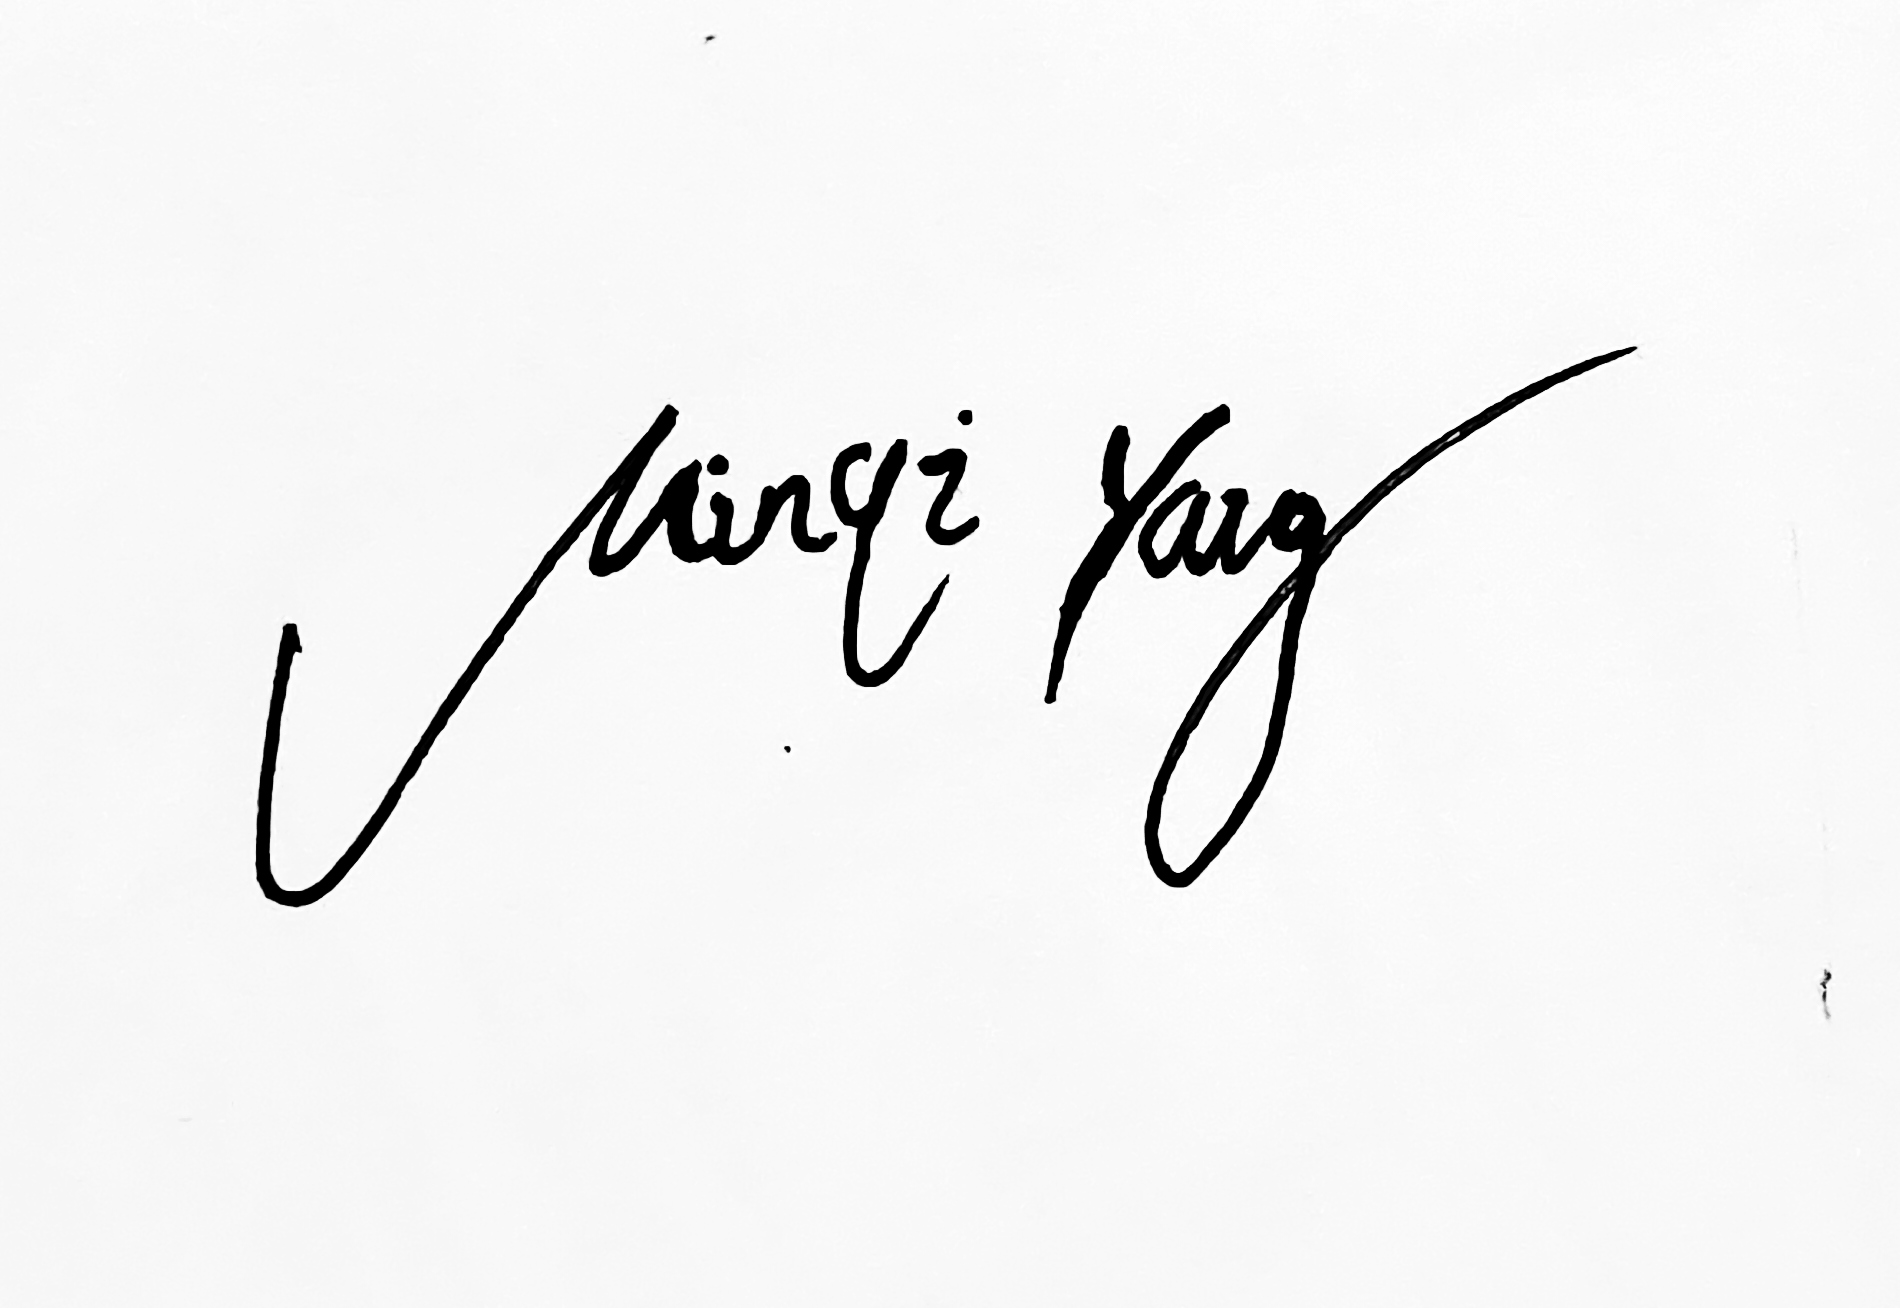 Minqi Yang